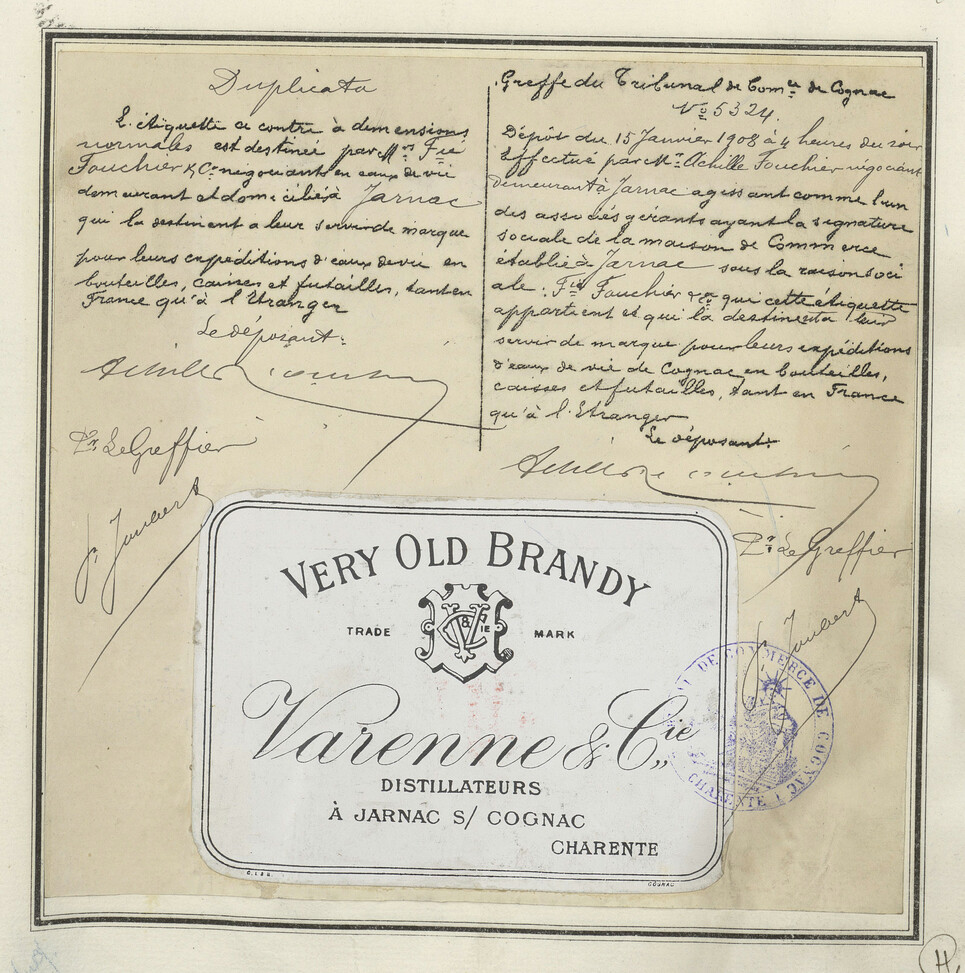 Duplicata
L'étiquette ci contre à dimensions
normales est destinée par Mrs Fié
Fouchier & Co négociants en eaux de vie
demeurant et domiciliés à Jarnac
qui la destinent a leur servir de marque
pour leurs expéditions d'eaux de vie en
bouteilles, caisses et futailles, tant en
France qu'à l'Etranger
Le déposant:
Pr Le Greffier
J. Joubert
Greffe du Tribunal de Comce de Cognac
No 5324.
Dépôt du 15 Janvier 1908 à 4 heures du soir
Effectué par Mr Achille Fouchier négociant
demeurant à Jarnac agissant comme l'un
des associés gérants ayant la signature
sociale de la maison de Commerce
établie à Jarnac sous la raison soci
ale: Fié Fouchier & Co qui cette étiquette
appartient et qui la destinent a leur
servir de marque pour leurs expéditions
d'eaux de vie de Cognac en bouteilles,
caisses et futailles, tant en France
qu'à l'Etranger
Le déposant:
Pr Le Greffier
J. Joubert
VERY OLD BRANDY
TRADE MARK
V&CIE
Varenne & Cie
DISTILLATEURS
À JARNAC S/ COGNAC
CHARENTE
COGNAC
DE COMMERCE DE COGNAC
CHARENTE
H.